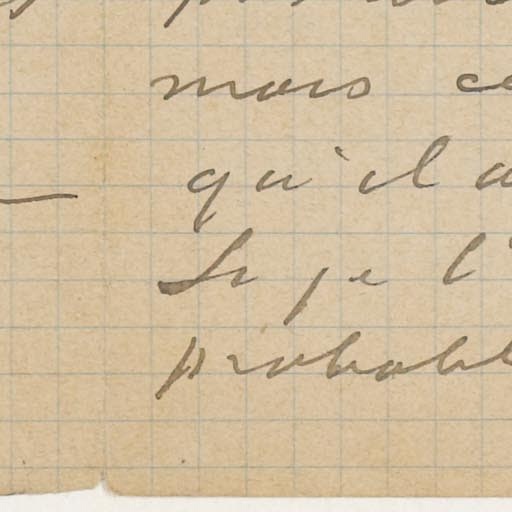 mais ce
qu'il a
Si je l'
probabl